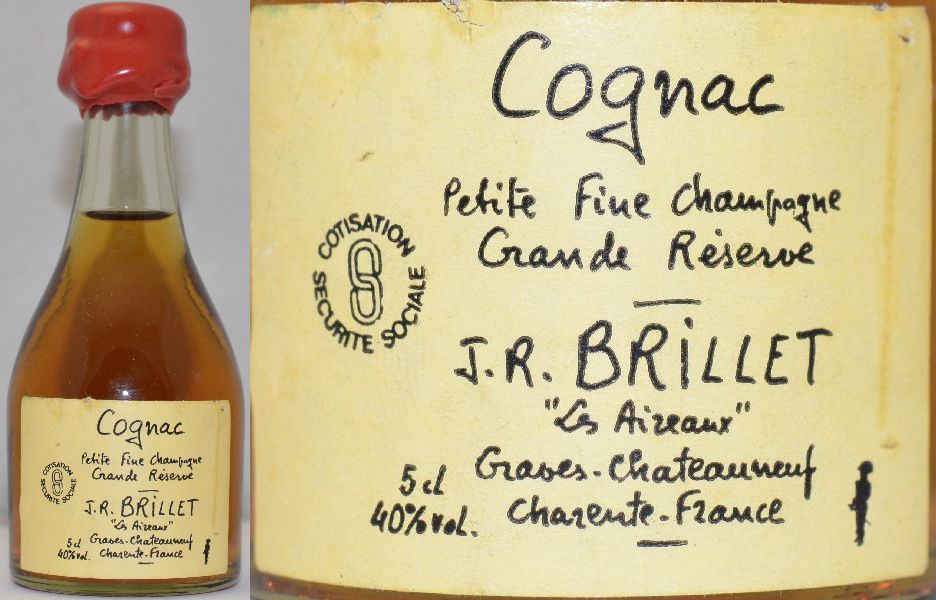 Cognac
Petite Fine Champagne
Grande Réserve
COTISATION
SECURITE SOCIALE
J.R. BRILLET
"Les Aizeaux"
5 cl Graves-Chateauneuf
40% vol. Charente-France
Cognac
Petite Fine Champagne
Grande Réserve
COTISATION
SECURITE SOCIALE
J.R. BRILLET
"Les Aizeaux"
Graves-Chateauneuf
5 cl
Charente-France
40% vol.